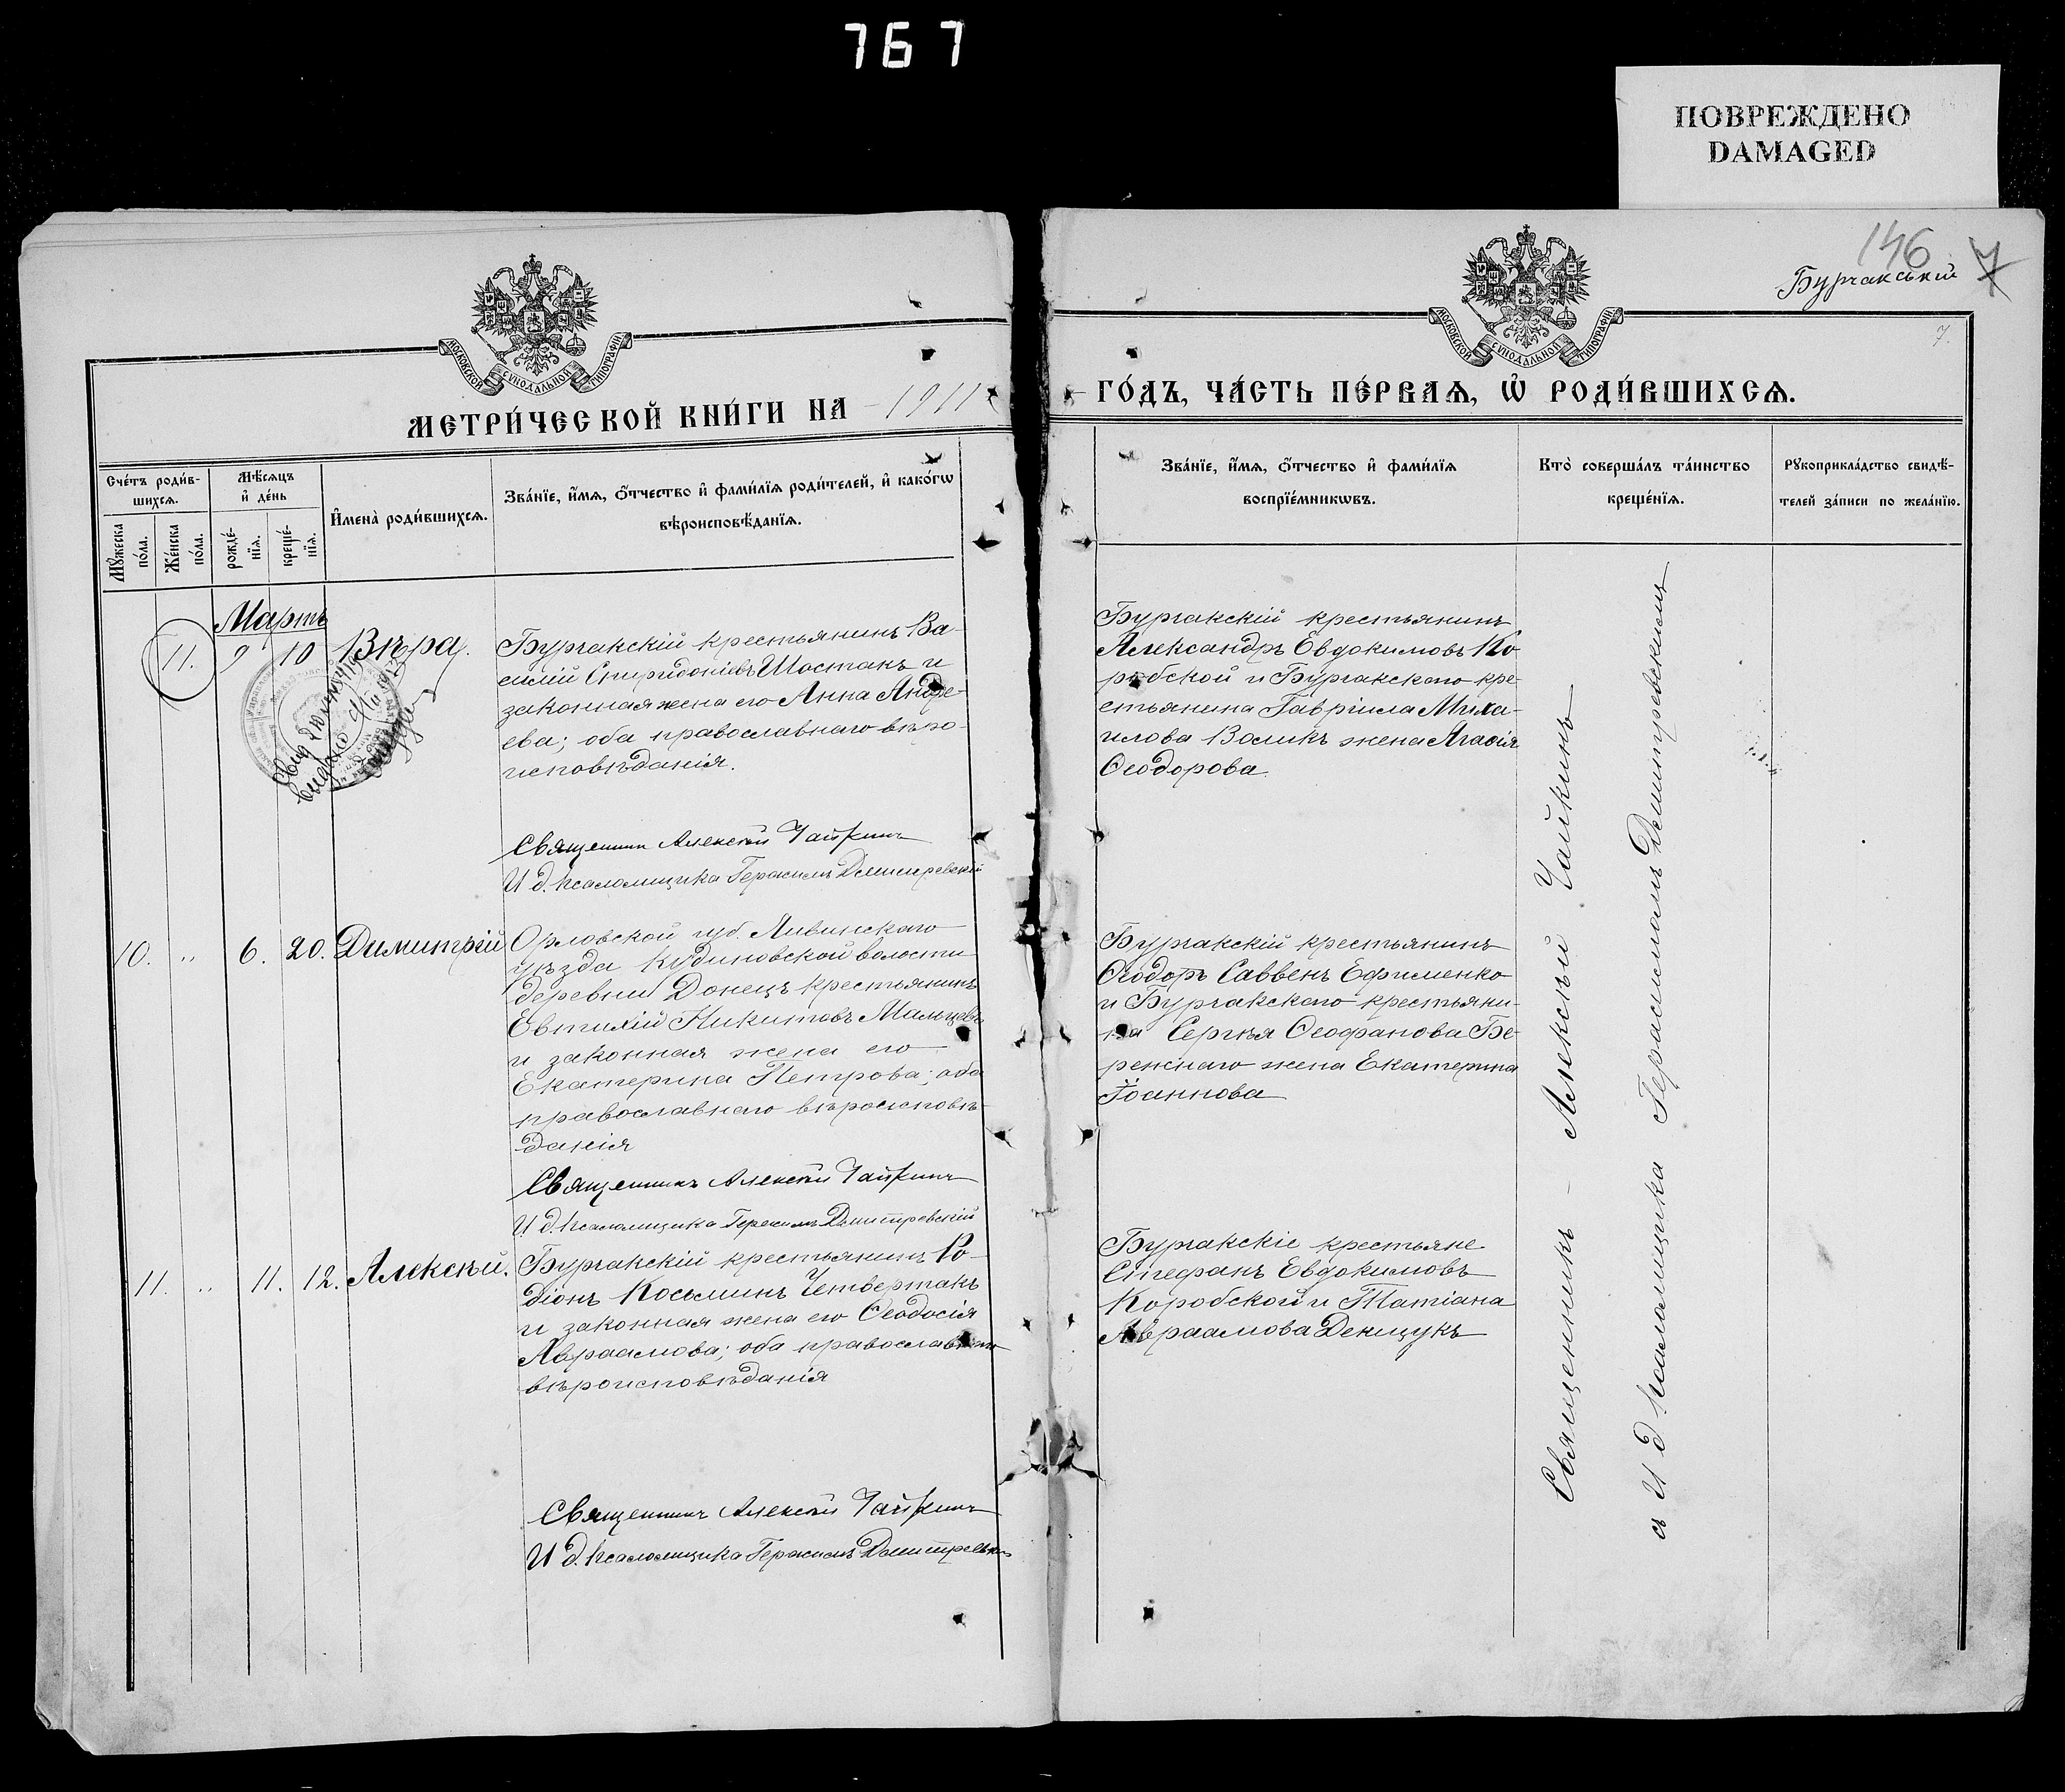 767
ПОВРЕЖДЕНО
DAMAGED
146
7
Бургакський
7.
МОСКОВСКОЙ СѴНОДАЛЬНОЙ ТИПОГРАФІИ
МОСКОВСКОЙ СѴНОДАЛЬНОЙ ТИПОГРАФІИ
МЕТРИ́ЧЕСКОЙ КНИ́ГИ НА 1911
ГО́ДЪ, ЧА́СТЬ ПЕ́РВАѦ, Ѡ҆ РОДИ́ВШИХСѦ.
Сче́тъ роди́в-
шихсѧ.
Мꙋ́жеска по́ла.
Же́нска по́ла.
Мѣ́сѧцъ и҆ де́нь
рожде́-нїѧ.
креще́-нїѧ.
И҆мена̀ роди́вшихсѧ.
Зва́нїе, и҆́мѧ, ѻ҆́тчество и҆ фами́лїѧ роди́телей, и҆ како́гѡ
вѣроисповѣ́данїѧ.
Зва́нїе, и҆́мѧ, ѻ҆́тчество и҆ фами́лїѧ
воспрїе́мникѡвъ.
Кто̀ соверша́лъ та́инство
креще́нїѧ.
Рꙋкоприкла́дство свидѣ́-
телей за́писи по жела́нїю.
Мартъ
11. 9 10 Вѣра.
Бургакскій крестьянинъ Ва-
силій Спиридоніевъ Шостакъ и
законная жена его Анна Андре-
ева; оба православнаго вѣро-
исповѣданія.
Священникъ Алексѣй Чайкинъ
И д. псаломщика Герасимъ Димитревскій
Бургакскій крестьянинъ
Александръ Евдокимовъ Ко
робской и Бургакского кре-
стьянина Гавріила Миха-
илова Воликъ жена Агафія
Ѳеодорова.
10. " 6. 20. Димитрій
Орловской губ. Ливинскаго
уѣзда Кудиновской волости
деревни Донецъ крестьянинъ
Евтихій Никитовъ Мальцевъ
и законная жена его
Екатерина Петрова; оба
православнаго вѣроисповѣ-
данія
Священникъ Алексѣй Чайкинъ
И д. псаломщика Герасимъ Димитревскій
Бургакскій крестьянинъ
Ѳеодоръ Саввинъ Ефименко
и Бургакскаго крестьяни-
на Сергѣя Ѳеофанова Бе-
режнаго жена Екатерина
Іоаннова
11. " 11. 12. Алексѣй.
Бургакскій крестьянинъ Ро-
діонъ Косьминъ Четвертакъ
и законная жена его Ѳеодосія
Авраамова; оба православнаго
вѣроисповѣданія
Священникъ Алексѣй Чайкинъ
И д. псаломщика Герасимъ Димитревскій
Бургакскіе крестьяне
Стефанъ Евдокимовъ
Коробской и Татіана
Авраамова Денщукъ
Священникъ - Алексѣй Чайкинъ
съ И д псаломщика Герасимомъ Димитревскимъ